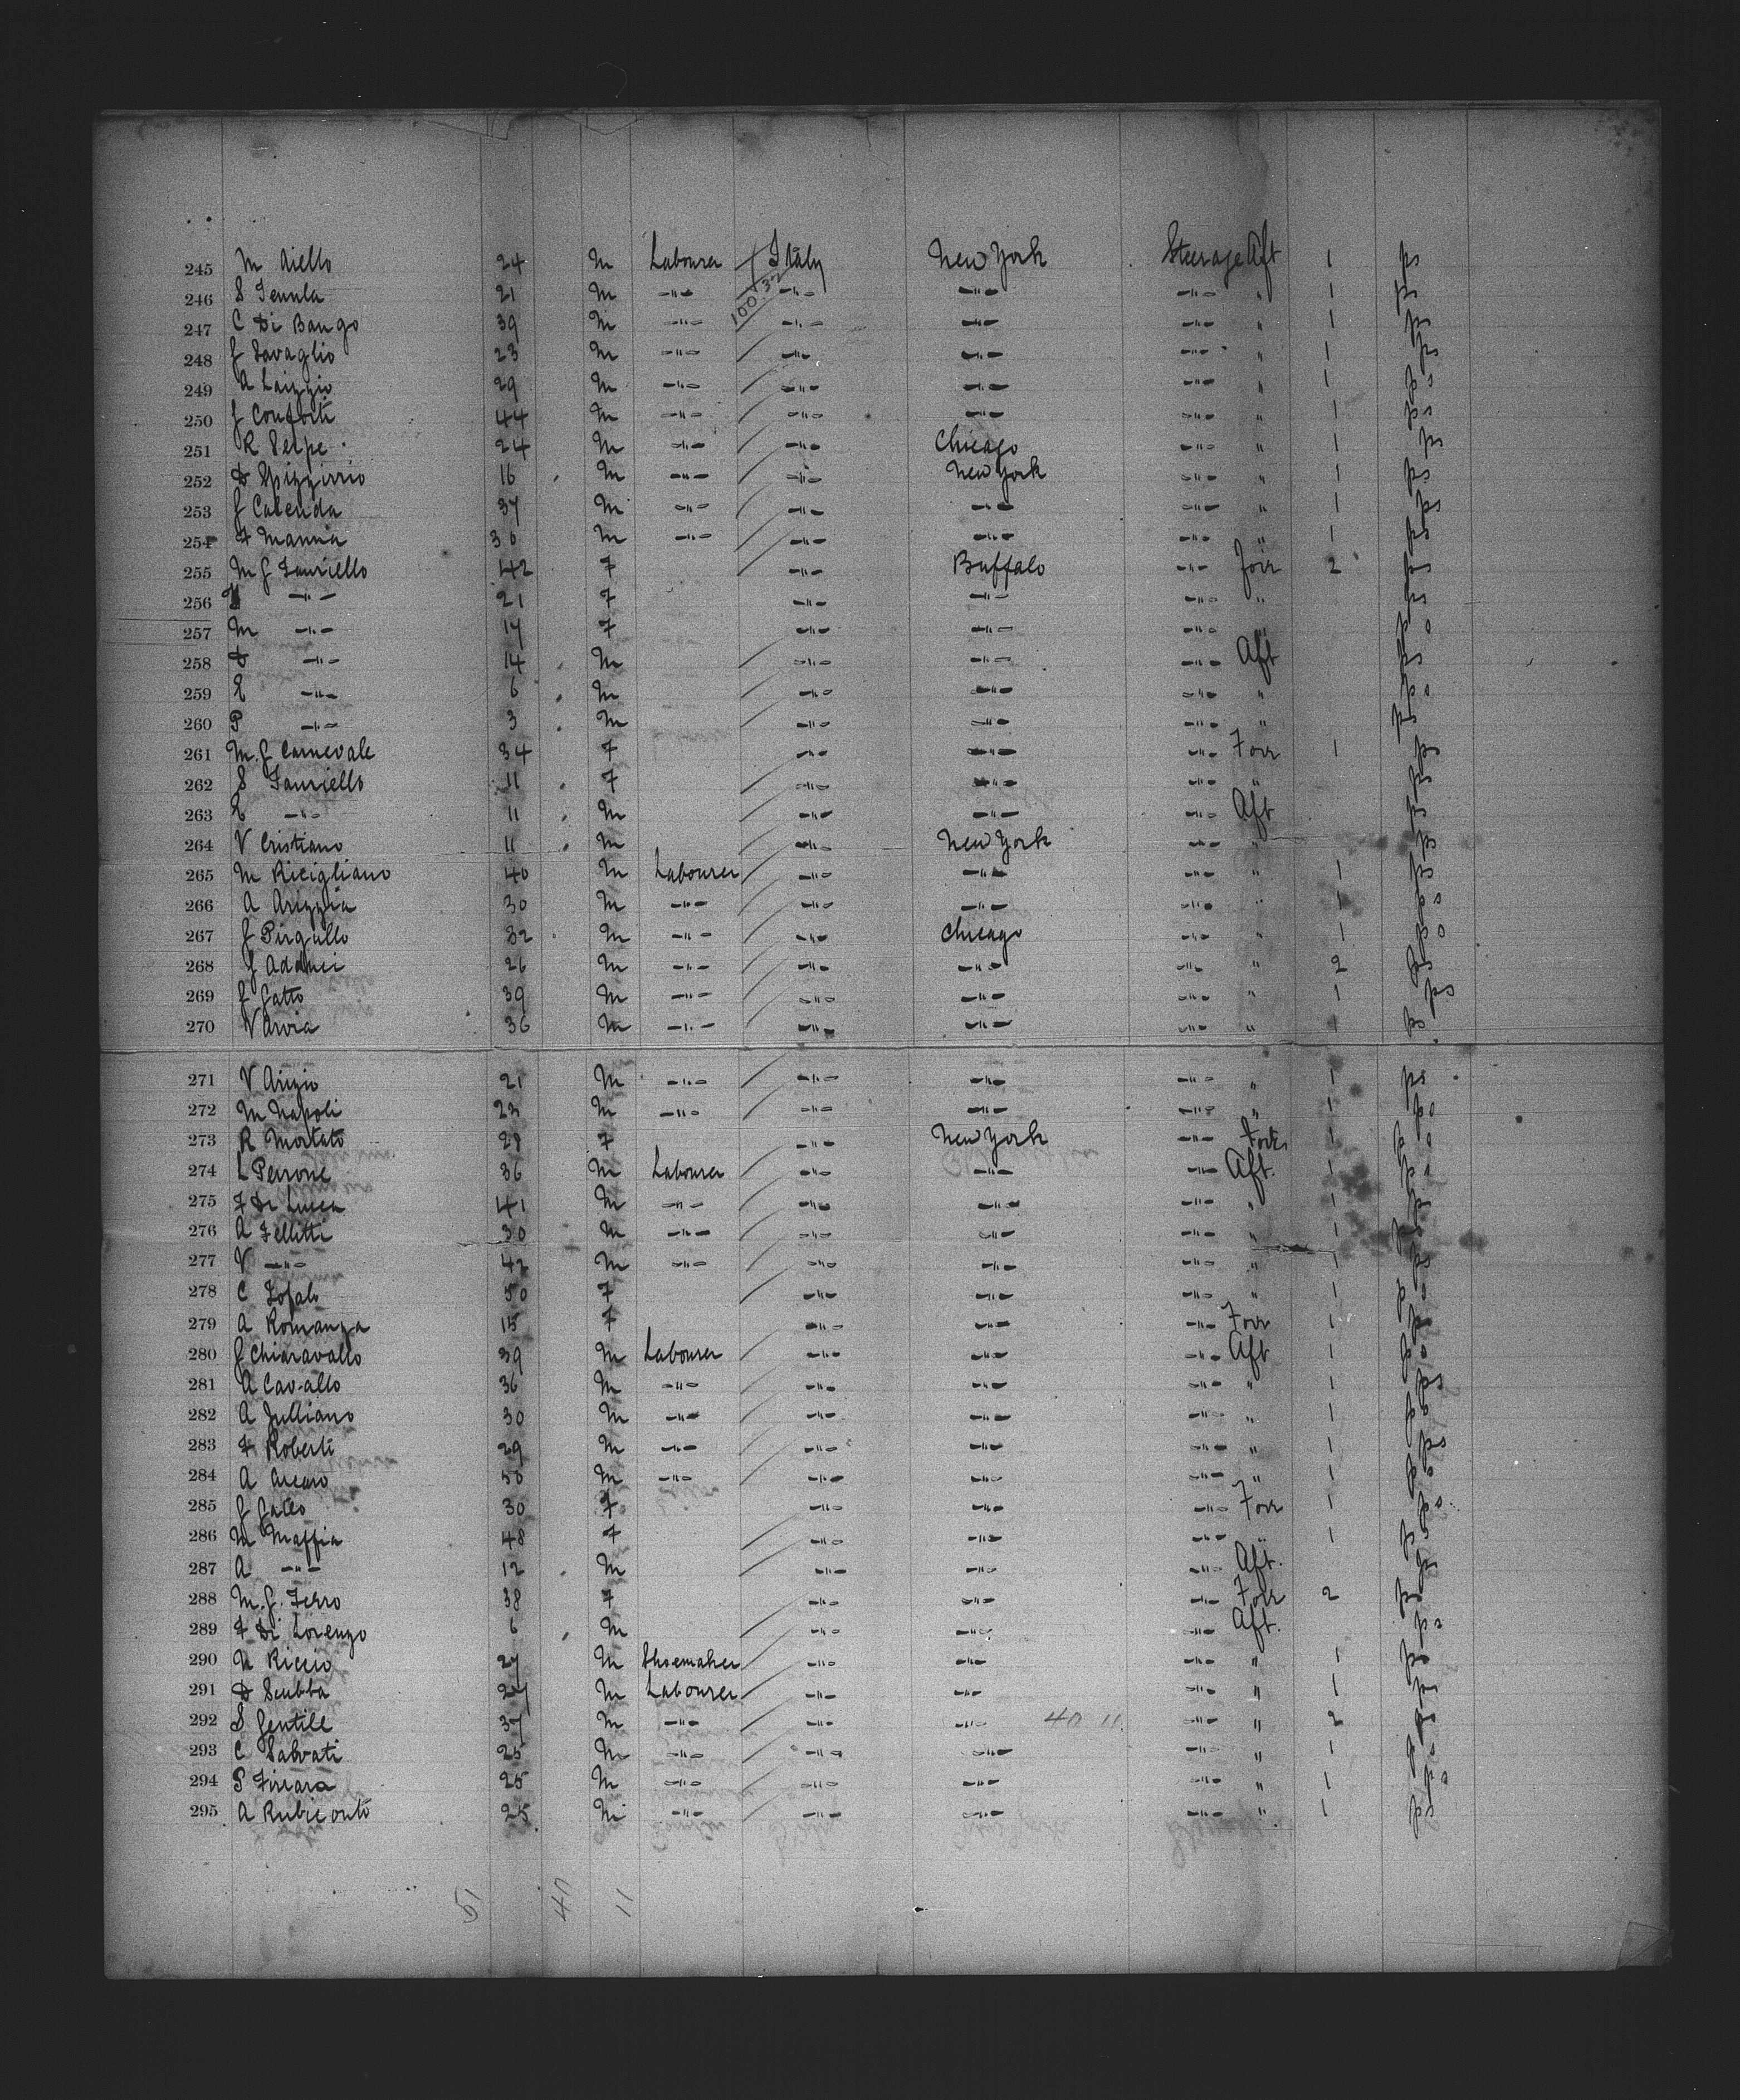 245 M Aiello 24 M Labourer Italy New York Steerage Aft 1 ps
246 S 21 M -"- -"- -"- -"- " 1 ps
100.37
247 C Di Bango 39 M -"- -"- -"- -"- " 1 ps
248 G 23 M -"- -"- -"- -"- " 1 ps
249 A 29 M -"- -"- -"- -"- " 1 ps
250 G Conforti 44 M -"- -"- -"- -"- " 1 ps
251 R Serpe 24 M -"- -"- Chicago -"- " 1 ps
252 D Spizzirrio 16 M -"- -"- New York -"- " 1 ps
253 G Calenda 37 M -"- -"- -"- -"- " 1 ps
254 F Manna 36 M -"- -"- -"- -"- " 1 ps
255 M G Tauriello 42 F -"- Buffalo -"- Forr 2 ps
256 -"- 21 F -"- -"- -"- " ps
257 M -"- 17 F -"- -"- -"- " ps
258 D -"- 14 M -"- -"- -"- Aft ps
259 E -"- 6 M -"- -"- -"- " ps
260 P -"- 3 M -"- -"- -"- " ps
261 M. G Carnevale 34 F -"- -"- -"- Forr 1 ps
262 S Tauriello 11 F -"- -"- -"- " ps
263 E -"- 11 M -"- -"- -"- Aft ps
264 V Cristiano 11 M -"- New York -"- " ps
265 M Ricigliano 40 M Labourer -"- -"- -"- " 1 ps
266 A 30 M -"- -"- -"- -"- " 1 ps
267 G Pirgallo 32 M -"- -"- Chicago -"- " 1 ps
268 G Adduci 26 M -"- -"- -"- -"- " 2 ps
269 G Gatto 39 M -"- -"- -"- -"- " 1 ps
270 V Arvia 36 M -"- -"- -"- -"- " 1 ps
271 V 21 M -"- -"- -"- -"- " 1 ps
272 M Napoli 23 M -"- -"- -"- -"- " 1 ps
273 R Mortato 28 F -"- New York -"- Forr 1 ps
274 L Perrone 36 M Labourer -"- -"- -"- Aft. 1 ps
275 F Di Lucca 41 M -"- -"- -"- -"- " 1 ps
276 A Fellitti 30 M -"- -"- -"- -"- " 1 ps
277 V -"- 42 M -"- -"- -"- -"- " 1 ps
278 C 50 F -"- -"- -"- " 1 ps
279 A Romanza 15 F -"- -"- -"- Forr 1 ps
280 G Chiaravallo 39 M Labourer -"- -"- -"- Aft 1 ps
281 A Cavallo 36 M -"- -"- -"- -"- " 1 ps
282 A Julliano 30 M -"- -"- -"- -"- " 1 ps
283 F Roberti 29 M -"- -"- -"- -"- " 1 ps
284 A 50 M -"- -"- -"- -"- " 1 ps
285 G Gallo 30 F -"- -"- -"- Forr 1 ps
286 M Maffia 48 F -"- -"- -"- " 1 ps
287 A -"- 12 M -"- -"- -"- Aft. ps
288 M. G. Ferro 38 F -"- -"- -"- Forr 2 ps
289 F Di Lorenzo 6 M -"- -"- -"- Aft. ps
290 N Riccio 27 M Shoemaker -"- -"- -"- " 1 ps
291 D Scubba 27 M Labourer -"- -"- -"- " 1 ps
292 S Gentile 37 M -"- -"- -"- 40 11 -"- " 2 ps
293 C Salvati 25 M -"- -"- -"- -"- " 1 ps
294 S Ficcara 25 M -"- -"- -"- -"- " 1 ps
295 A Rubiconto 25 M -"- -"- -"- -"- " 1 ps